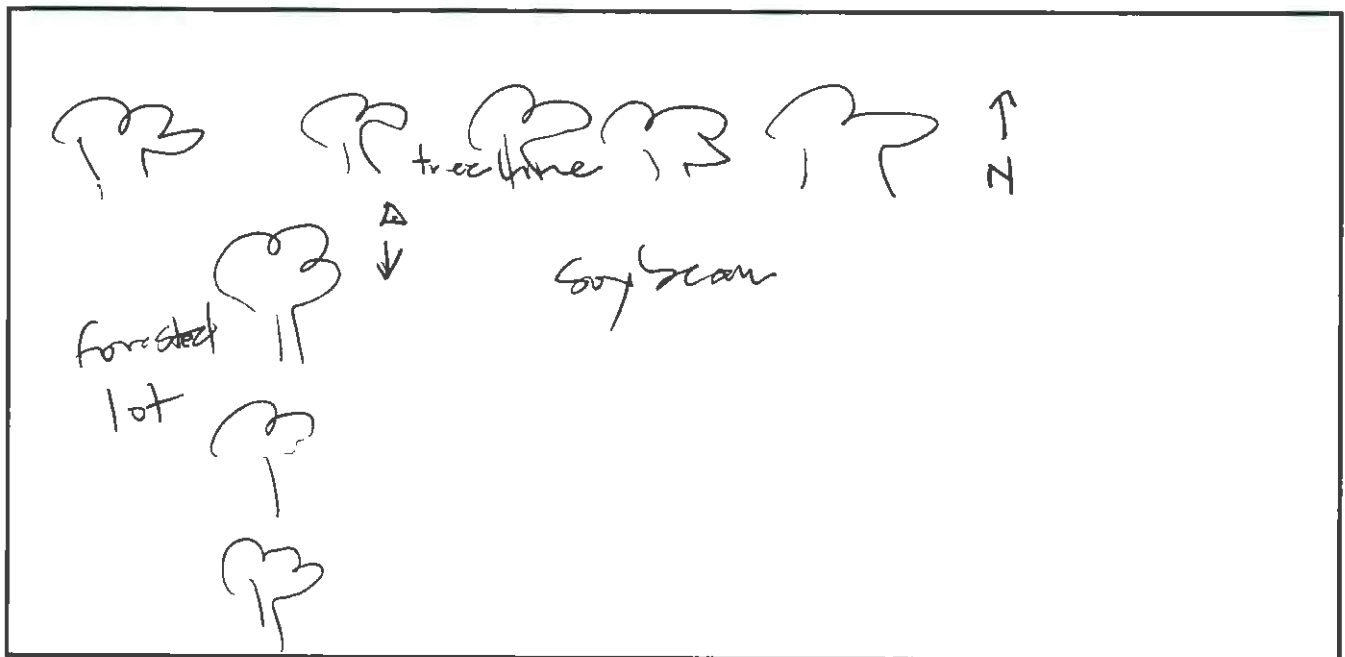 treeline
N
soybean
forested
lot